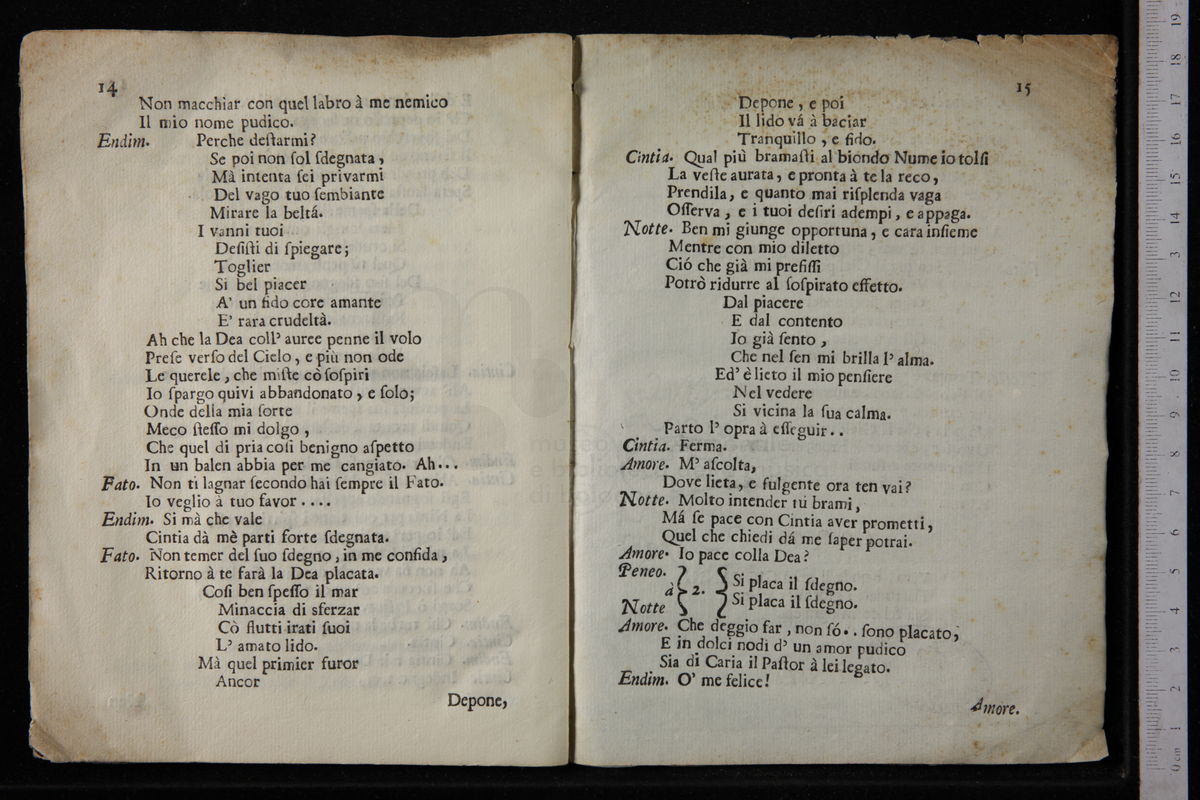 14
Non macchiar con quel labro à me nemico
Il mio nome pudico.
Endim. Perche deſtarmi?
Se poi non ſol ſdegnata,
Mà intenta ſei privarmi
Del vago tuo ſembiante
Mirare la beltá.
I vanni tuoi
Deſiſti di ſpiegare;
Toglier
Si bel piacer
A' un fido core amante
E' rara crudeltà.
Ah che la Dea coll' auree penne il volo
Preſe verſo del Cielo, e più non ode
Le querele, che miſte cò ſoſpiri
Io ſpargo quivi abbandonato, e ſolo;
Onde della mia ſorte
Meco ſteſſo mi dolgo,
Che quel di pria coſi benigno aſpetto
In un balen abbia per me cangiato. Ah...
Fato. Non ti lagnar ſecondo hai ſempre il Fato.
Io veglio à tuo favor ....
Endim. Si mà che vale
Cintia dà mè parti forte ſdegnata.
Fato. Non temer del ſuo ſdegno, in me confida,
Ritorno à te farà la Dea placata.
Coſi ben ſpeſſo il mar
Minaccia di sferzar
Cò flutti irati ſuoi
L' amato lido.
Mà quel primier furor
Ancor
Depone,
15
Depone, e poi
Il lido vá à baciar
Tranquillo, e fido.
Cintia. Qual più bramaſti al biondo Nume io tolſi
La veſte aurata, e pronta à te la reco,
Prendila, e quanto mai riſplenda vaga
Oſſerva, e i tuoi deſiri adempi, e appaga.
Notte. Ben mi giunge opportuna, e cara inſieme
Mentre con mio diletto
Ció che già mi prefiſſi
Potrò ridurre al ſoſpirato effetto.
Dal piacere
E dal contento
Io già ſento,
Che nel ſen mi brilla l' alma.
Ed' è lieto il mio penſiere
Nel vedere
Si vicina la ſua calma.
Parto l' opra à eſſeguir..
Cintia. Ferma.
Amore. M' aſcolta,
Dove lieta, e fulgente ora ten vai?
Notte. Molto intender tù brami,
Má ſe pace con Cintia aver prometti,
Quel che chiedi dá me ſaper potrai.
Amore. Io pace colla Dea?
Peneo. Si placa il ſdegno.
à 2.
Notte Si placa il ſdegno.
Amore. Che deggio far, non ſó.. ſono placato,
E in dolci nodi d' un amor pudico
Sia di Caria il Paſtor à lei legato.
Endim. O' me felice!
Amore.